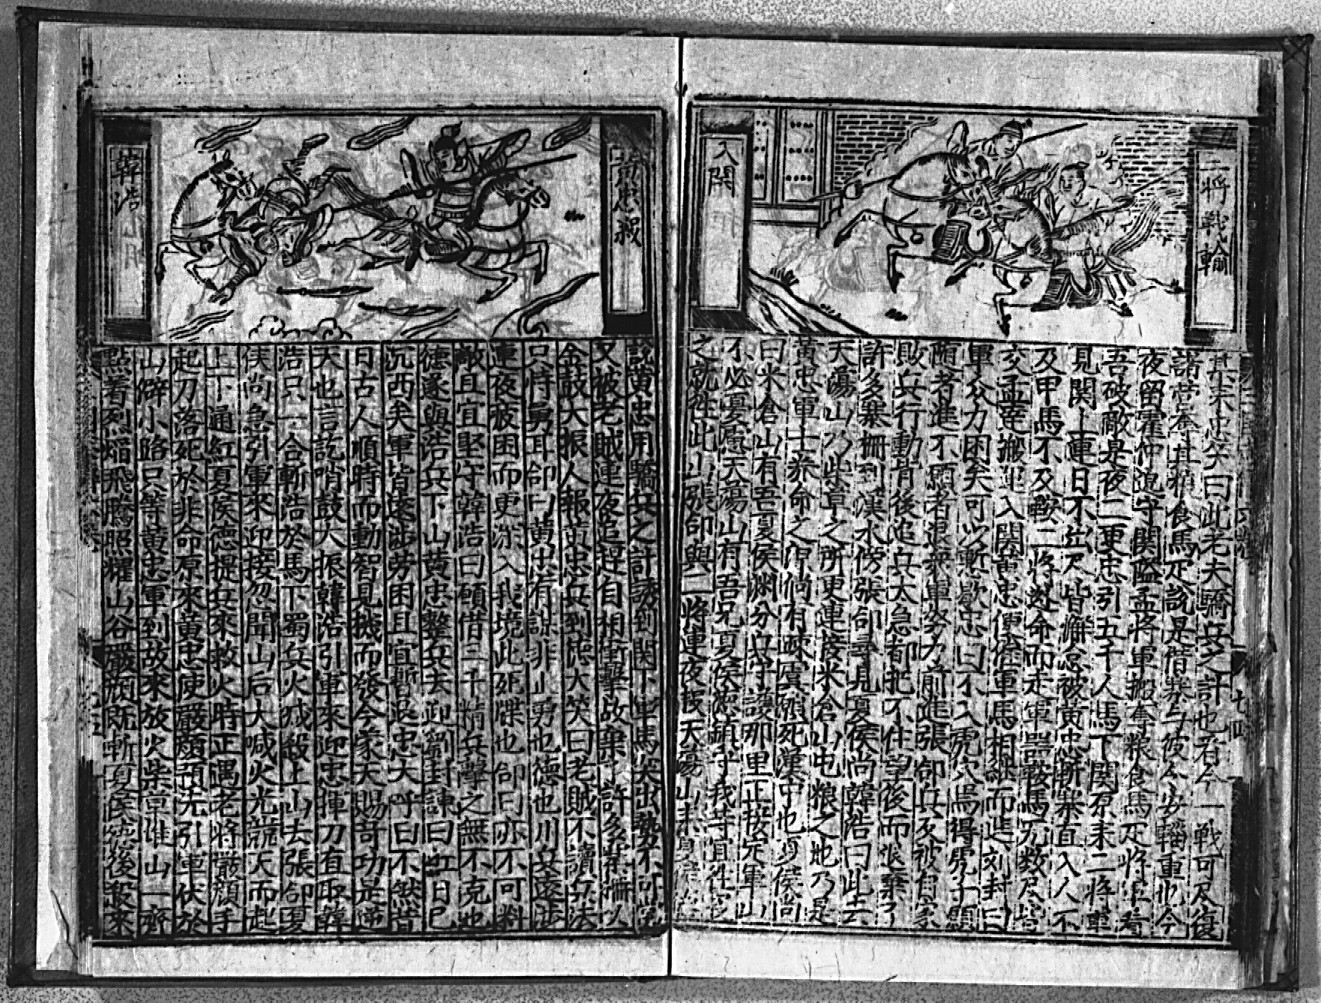 二將戰輸
入関
其來忠笑曰此老夫驕兵之計也看今一戰可尽復
諸营奪其粮食馬疋說是借寨与彼今歩輜重也今
夜留霍仲邈守関隘孟將軍搬奪粮食馬疋將軍看
吾破敵是夜二更忠引五千人馬下関原來二將軍
見関上連日不出尽皆懈怠被黃忠斬寨直入人不
及甲馬不及鞍二將逃命而走軍器鞍馬无数尽
交孟達搬運入関黃忠便催軍馬相継而進刘封曰
軍众力困矣可以暫歇忠曰不入虎穴焉得虎子願
随者進不願者退衆軍努力前進張郃兵及被自家
敗兵行動背後追兵大急都把不住望後而退棄了
許多寨柵到漢水傍張郃尋見夏侯尚韓浩曰此去
天蕩山乃柴草之所更連接米倉山屯粮之地乃是
黃忠軍士养命之源倘有疎虞願死漢中也夏侯尚
曰米倉山有吾夏侯渊分兵守護那里正接定軍山
不必憂慮天蕩山有吾兄夏侯德鎮守我等宜往
之就徃此山張郃與二將連夜投天蕩山來見
黃忠殺
韓浩
說黃忠用驕兵之計誘到関下軍馬尖出勢不可當
又被老賊連夜追赶自相衝擊故棄許多寨柵
金鼓大振人報黃忠兵到德大笑曰老賊不讀兵法
只恃勇耳郃曰黃忠有謀非止勇也德曰川兵遠涉
連夜疲困而更深入我境此死謀也郃曰亦不可料
敵且宜堅守韓浩曰願借三千精兵擊之無不克也
德遂與浩兵下山黃忠整兵夫迎劉封諫曰紅日已
沉西矣軍皆遠涉劳困且宜暫退忠大呼曰不然昔
日古人順時而動智見機而發今蒙天賜奇功是逆
天也言訖哨鼓大振韓浩引軍來迎忠揮刀直取韓
浩只一合斬浩於馬下蜀兵火喊殺上山去張郃夏
侯尚急引軍來迎接忽聞山后大喊火光競天而起
上下通紅夏侯德提兵來救火時正遇老將嚴顏手
起刀落死於非命原來黃忠使嚴顏預先引軍伏於
山僻小路只等黃忠軍到故來放火柴草堆山一齊
點着烈熖飛騰照耀山谷嚴顏既斬夏侯德從後殺來